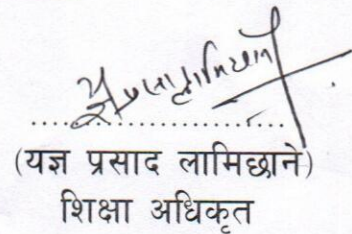 ........................................
(यज्ञ प्रसाद लामिछाने)
शिक्षा अधिकृत